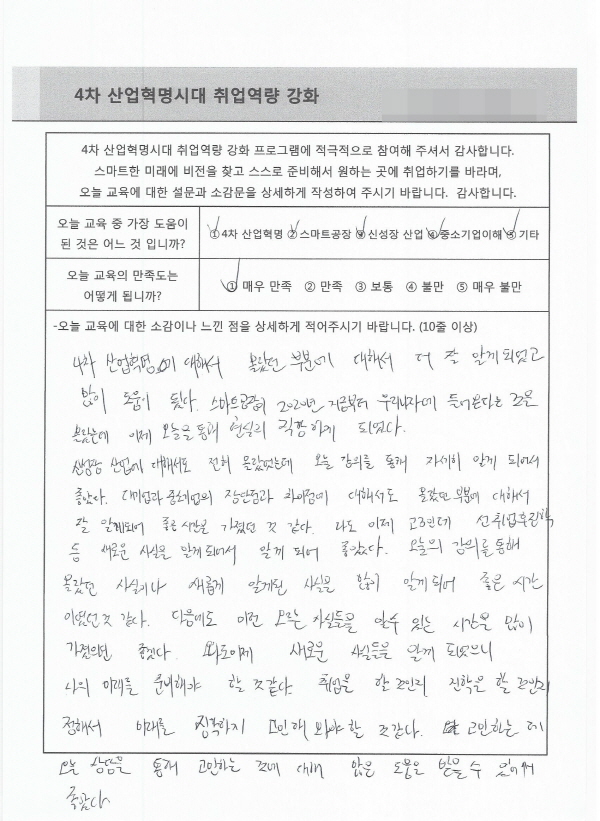 4차 산업혁명시대 취업역량 강화
4차 산업혁명시대 취업역량 강화 프로그램에 적극적으로 참여해 주셔서 감사합니다.
스마트한 미래에 비전을 찾고 스스로 준비해서 원하는 곳에 취업하기를 바라며,
오늘 교육에 대한 설문과 소감문을 상세하게 작성하여 주시기 바랍니다. 감사합니다.
오늘 교육 중 가장 도움이
된 것은 어느 것 입니까?
① 4차 산업혁명 ② 스마트공장 ③ 신성장 산업 ④ 중소기업이해 ⑤ 기타
오늘 교육의 만족도는
어떻게 됩니까?
① 매우 만족 ② 만족 ③ 보통 ④ 불만 ⑤ 매우 불만
-오늘 교육에 대한 소감이나 느낀 점을 상세하게 적어주시기 바랍니다. (10줄 이상)
4차 산업혁명에 대해서 몰랐던 부분에 대해서 더 잘 알게되었고
많이 도움이 됬다. 스마트공장이 2020년 지금부터 우리나라에 들어온다는 것은
몰랐는데 이제 오늘을 통해 현실의 직항하게 되었다.
신성장 산업에 대해서도 전혀 몰랐었는데 오늘 강의를 통해 자세히 알게 되어서
좋았다. 대기업과 중소기업의 장단점과 차이점에 대해서도 몰랐던 부분에 대해서
잘 알게되어 좋은 시간을 가졌던 것 같다. 나도 이제 고3인데 선취업후진학
등 새로운 사실을 알게되어서 알게 되어 좋았다. 오늘의 강의를 통해
몰랐던 사실이나 새롭게 알게된 사실을 많이 알게되어 좋은 시간
이였던것 같다. 다음에도 이런 모르는 사실들을 알수 있는 시간을 많이
가졌으면 좋겠다. 새로운 사실들을 알게 되었으니
나의 미래를 준비해야 할 것같다. 취업을 할 것인지 진학을 할 것인지
정해서 미래를 고민해 봐야할 것같다. 고민하는데
오늘 상담을 통해 고민하는 것에 대해 많은 도움을 받을 수 있어서
좋았다